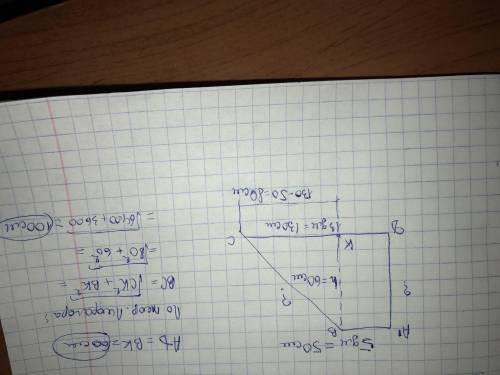 5дм = 50см
A
B
?
?
h=60см
D
K
C
13дм = 130см
130-50=80см
AD = BK = 60см
По теор. Пифагора:
BC = √CK² + BK² =
= √80² + 60² =
= √6400 + 3600 = 100см